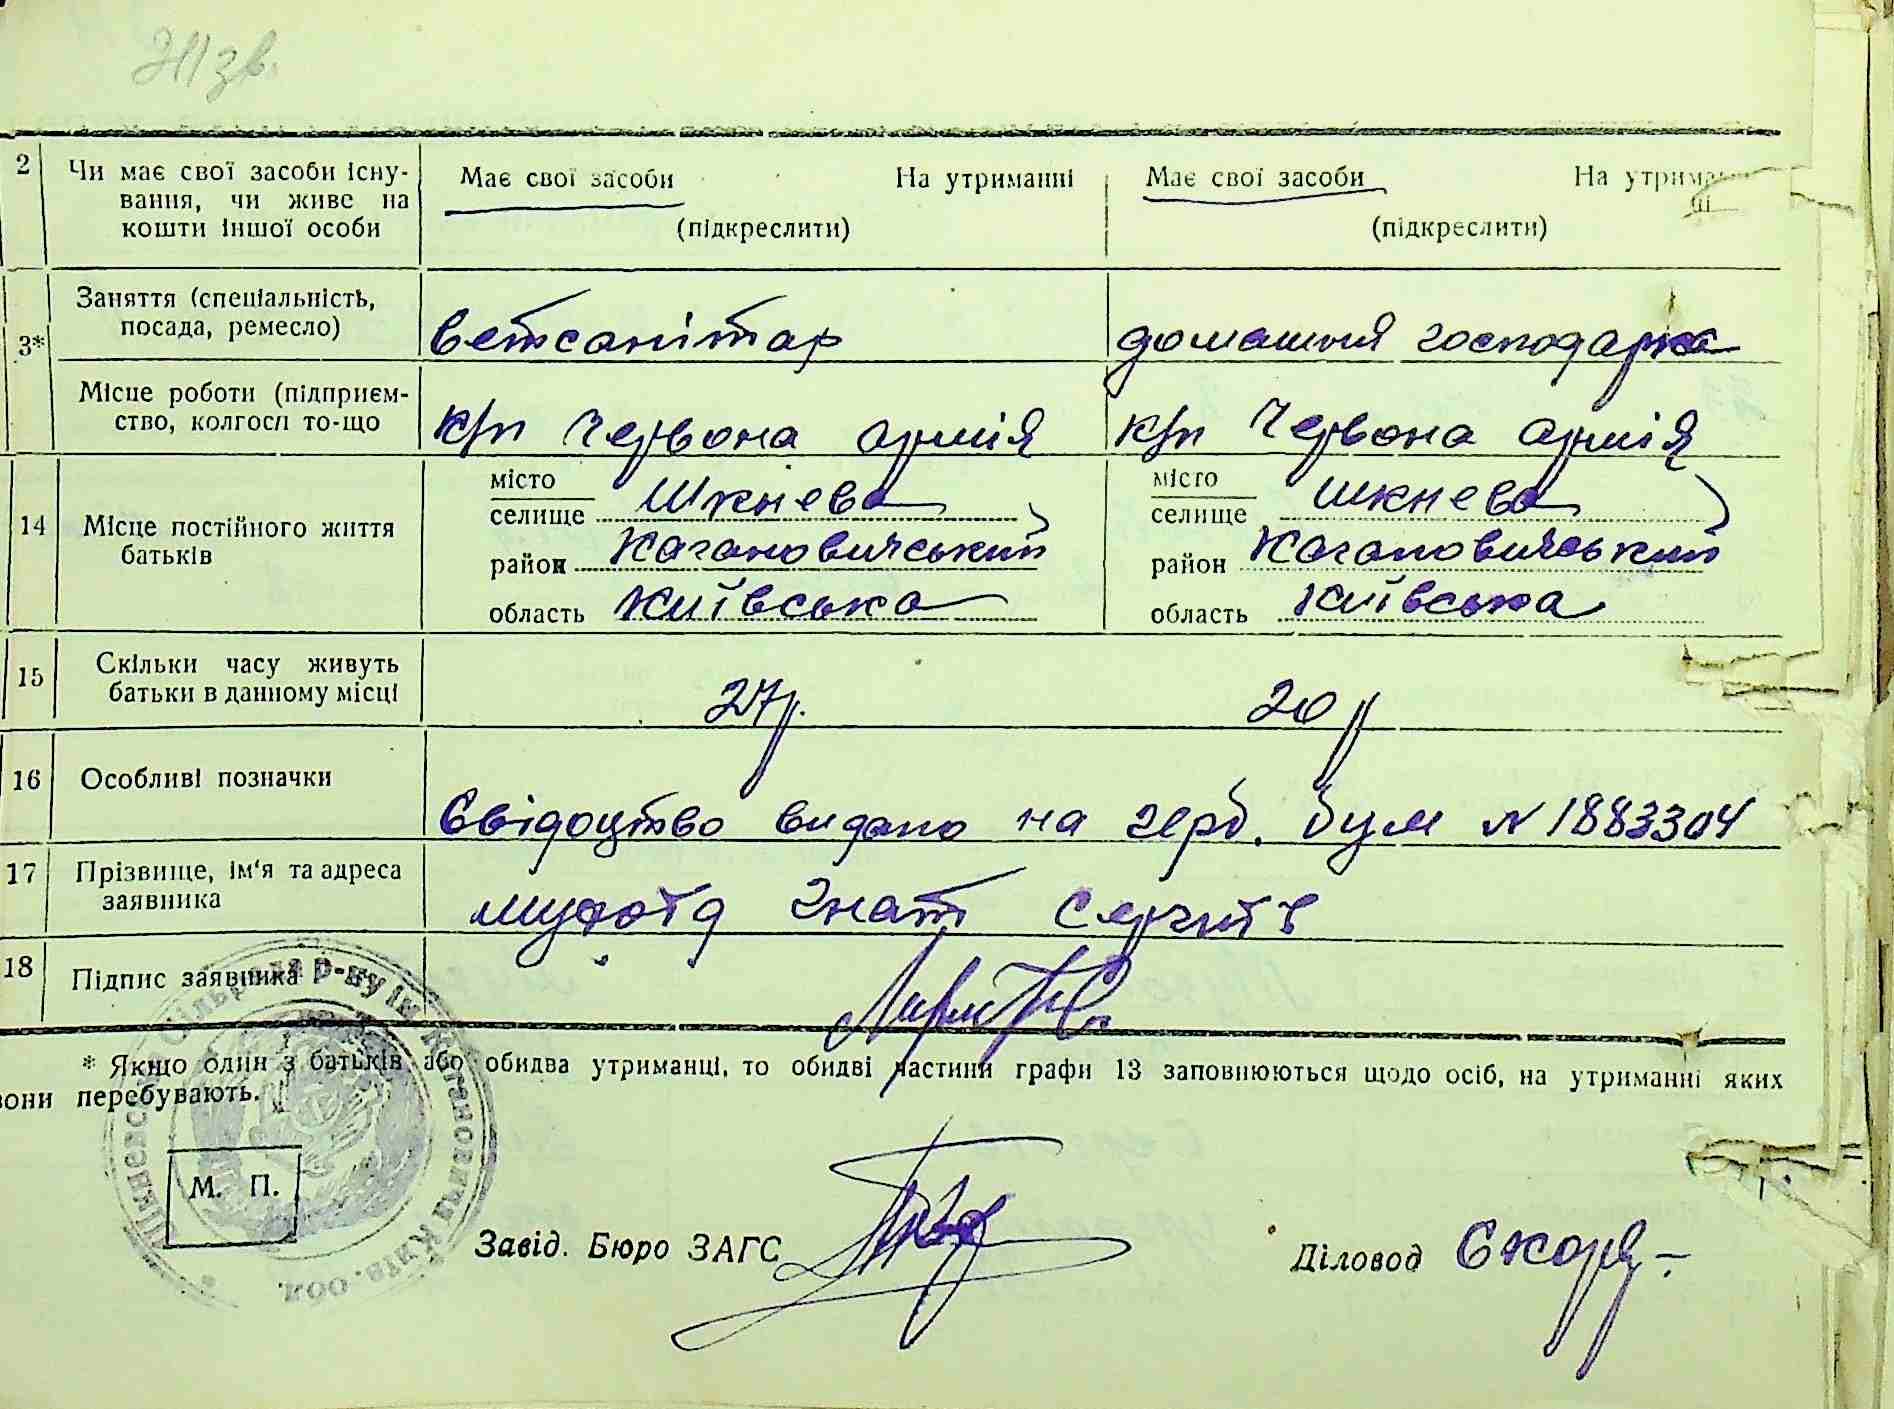 зв.
2 Чи має свої засоби існу-
вання, чи живе на
кошти іншої особи
Має свої засоби На утриманні
(підкреслити)
Має свої засоби
(підкреслити)
3* Заняття (спеціальність,
посада, ремесло)
ветсанітар
домашня господарка
Місце роботи (підприєм-
ство, колгосп то-що
к/п Червона армія
к/п Червона армія
14 Місце постійного життя
батьків
місто
селище Шкнева
район Кагановичський
область Київська
місто
селище Шкнева
район Кагановичський
область Київська
15 Скільки часу живуть
батьки в данному місці
27р.
20р
16 Особливі позначки
Свідоцтво видано на герб. бум N 1883304
17 Прізвище, ім'я та адреса
заявника
Гнат
18 Підпис заявника
* Якщо один з батьків або обидва утриманці, то обидві частини графи 13 заповнюються щодо осіб, на утриманні яких
вони перебувають.
сільрада р-ну ім. Кагановича Київ. обл.
М. П.
Завід. Бюро ЗАГС
Діловод